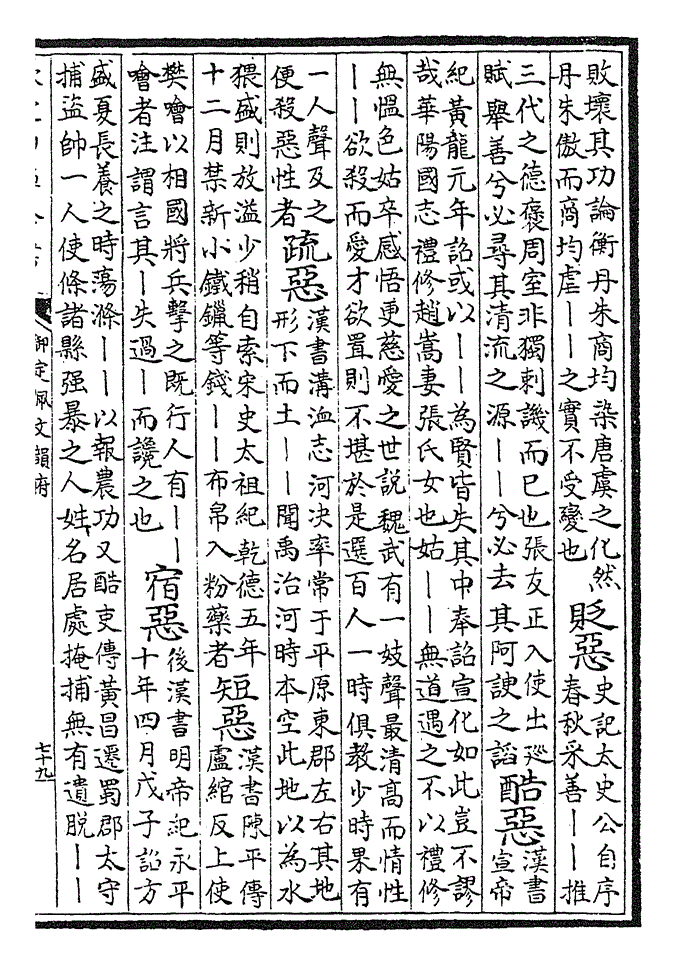 敗壞其功論衡丹朱商均染唐虞之化然
丹朱傲而商均虐——之實不受變也
貶惡
史記太史公自序
春秋采善——推
三代之德襃周室非獨刺譏而已也張友正入使出廵
賦舉善兮必尋其清流之源——兮必去其阿諛之謟
酷惡
漢書
宣帝
紀黃龍元年詔或以——為賢皆失其中奉詔宣化如此豈不謬
哉華陽國志禮修趙嵩妻張氏女也姑——無道遇之不以禮修
無愠色姑卒感悟更慈愛之世説魏武有一妓聲最清髙而情性
——欲殺而愛才欲置則不堪於是選百人一時俱教少時果有
一人聲及之
便殺惡性者
疏惡
漢書溝洫志河决率常于平原東郡左右其地
形下而土——聞禹治河時本空此地以為水
猥盛則放溢少稍自索宋史太祖紀乾德五年
十二月禁新小鐵鑞等錢——布帛入粉藥者
短惡
漢書陳平傳
盧綰反上使
樊噲以相國將兵擊之既行人有——
噲者注謂言其—失過—而讒之也
宿惡
後漢書明帝紀永平
十年四月戊子詔方
盛夏長養之時蕩滌——以報農功又酷吏傳黃昌遷蜀郡太守
捕盜帥一人使條諸縣强暴之人姓名居處掩捕無有遺脱——
御定佩文韻府
七十九